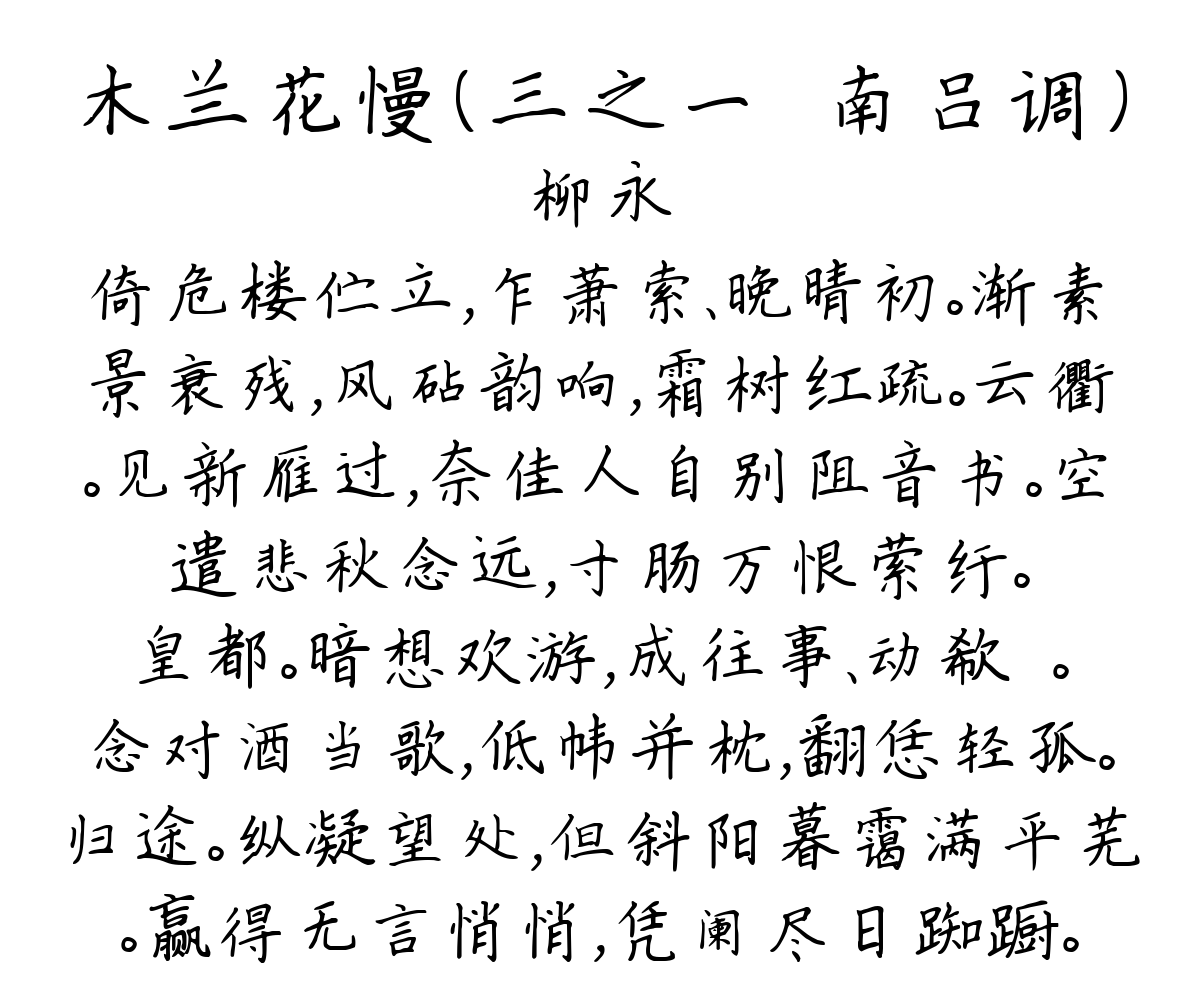 木兰花慢(三之一 南吕调)
柳永
倚危楼伫立,乍萧索、晚晴初。渐素
景衰残,风砧韵响,霜树红疏。云衢
。见新雁过,奈佳人自别阻音书。空
遣悲秋念远,寸肠万恨萦纡。
皇都。暗想欢游,成往事、动欷 。
念对酒当歌,低帏并枕,翻恁轻孤。
归途。纵凝望处,但斜阳暮霭满平芜
。赢得无言悄悄,凭阑尽日踟蹰。